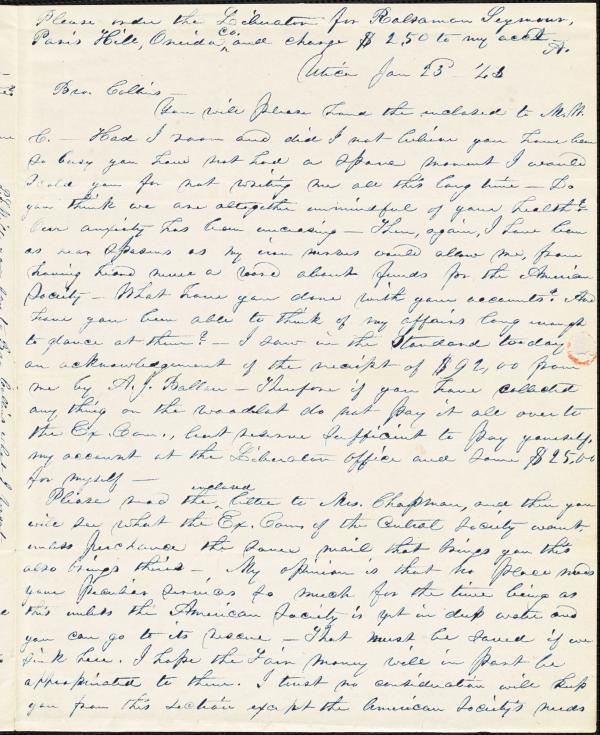 Please order the Liberator for Ralsaman Seymour,
Paris Hill, Oneida Co. and charge $2,50 to my acct
A.
Utica Jan 23d - 43
Bro. Collins -
You will please hand the enclosed to M. W.
C. - Had I room and did I not believe you have been
so busy you have not had a spare moment I would
scold you for not writing me all this long time - Do
you think we are altogether unmindful of your health?
Our anxiety has been increasing - Then, again, I have been
as near spasms as my iron nerves would allow me, from
having heard never a word about funds for the American
Society - What have you done with your accounts? And
have you been able to think of my affairs long enough
to glance at them? - I saw in the Standard today
an acknowledgement of the receipt of $92,00 from
me by A. J. Ballou - Therefore if you have collected
any thing on the woodlot do not pay it all over to
the Ex. Com., but reserve sufficient to pay yourself,
my account at the Liberator office and some $25,00
for myself -
Please read the enclosed letter to Mrs. Chapman, and then you
will see what the Ex. Com of the Central Society want,
unless perchance the same mail, that brings you this
also brings theirs - My opinion is that no place needs
your peculiar services so much for the time being as
this unless the American Society is yet in deep water and
you can go to its rescue - That must be saved if we
sink here. I hope the Fair money will in part be
appropriated to them. I trust no consideration will keep
you from this section except the American Society's needs